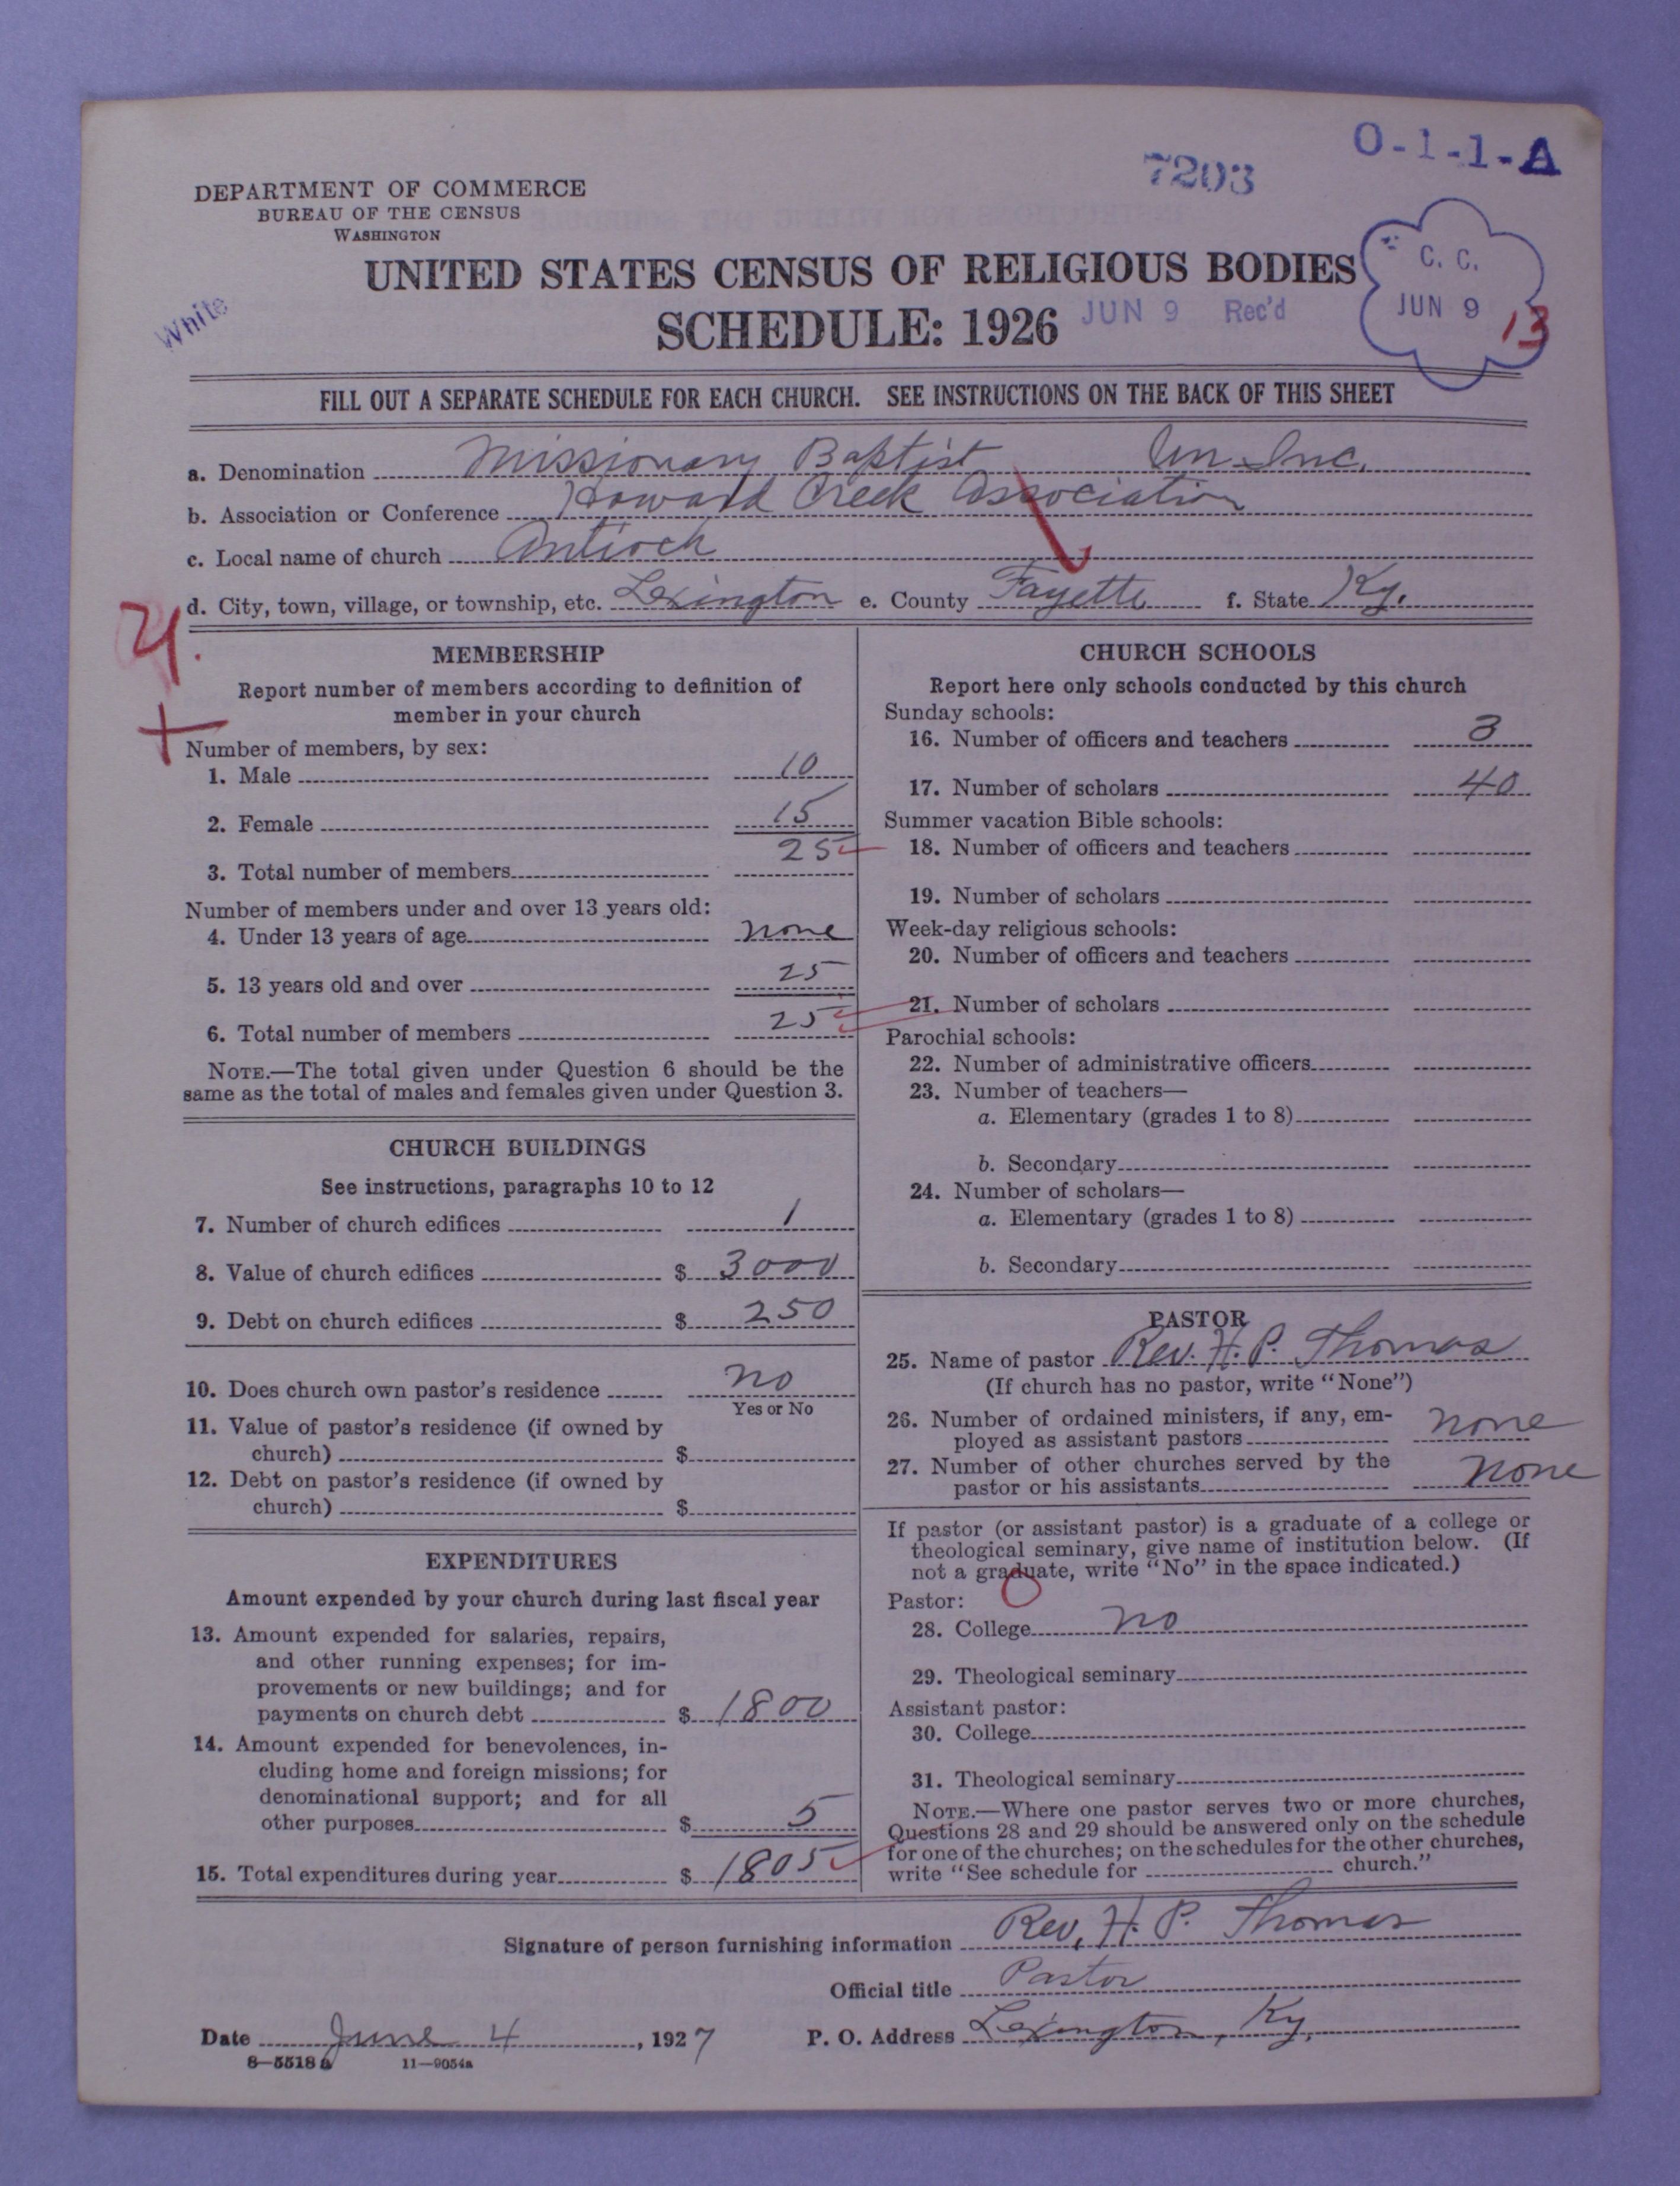 O-1-1-A
7203
DEPARTMENT OF COMMERCE
BUREAU OF THE CENSUS
WASHINGTON
UNITED STATES CENSUS OF RELIGIOUS BODIES
C. C.
JUN 9
13
White
SCHEDULE: 1926
JUN 9 Rec'd
FILL OUT A SEPARATE SCHEDULE FOR EACH CHURCH. SEE INSTRUCTIONS ON THE BACK OF THIS SHEET
a. Denomination Missionary Baptist Un-Inc.
b. Association or Conference Howard Creek Association
c. Local name of church Antioch
d. City, town, village, or township, etc. Lexington e. County Fayette f. State Ky.
MEMBERSHIP
Report number of members according to definition of
member in your church
Number of members, by sex:
1. Male 10
2. Female 15
3. Total number of members 25
Number of members under and over 13 years old:
4. Under 13 years of age none
5. 13 years old and over 25
6. Total number of members 25
NOTE.—The total given under Question 6 should be the
same as the total of males and females given under Question 3.
CHURCH BUILDINGS
See instructions, paragraphs 10 to 12
7. Number of church edifices 1
8. Value of church edifices $ 3000
9. Debt on church edifices $ 250
10. Does church own pastor's residence no
Yes or No
11. Value of pastor's residence (if owned by
church) $
12. Debt on pastor's residence (if owned by
church) $
EXPENDITURES
Amount expended by your church during last fiscal year
13. Amount expended for salaries, repairs,
and other running expenses; for im-
provements or new buildings; and for
payments on church debt $ 1800
14. Amount expended for benevolences, in-
cluding home and foreign missions; for
denominational support; and for all
other purposes $ 5
15. Total expenditures during year $ 1805
CHURCH SCHOOLS
Report here only schools conducted by this church
Sunday schools:
16. Number of officers and teachers 3
17. Number of scholars 40
Summer vacation Bible schools:
18. Number of officers and teachers
19. Number of scholars
Week-day religious schools:
20. Number of officers and teachers
21. Number of scholars
Parochial schools:
22. Number of administrative officers
23. Number of teachers—
a. Elementary (grades 1 to 8)
b. Secondary
24. Number of scholars—
a. Elementary (grades 1 to 8)
b. Secondary
PASTOR
25. Name of pastor Rev. H. P. Thomas
(If church has no pastor, write "None")
26. Number of ordained ministers, if any, em-
ployed as assistant pastors none
27. Number of other churches served by the
pastor or his assistants none
If pastor (or assistant pastor) is a graduate of a college or
theological seminary, give name of institution below. (If
not a graduate, write "No" in the space indicated.)
Pastor:
28. College no
29. Theological seminary
Assistant pastor:
30. College
31. Theological seminary
NOTE.—Where one pastor serves two or more churches,
Questions 28 and 29 should be answered only on the schedule
for one of the churches; on the schedules for the other churches,
write "See schedule for church."
Signature of person furnishing information Rev. H. P. Thomas
Official title Pastor
Date June 4, 1927 P. O. Address Lexington, Ky.
8—5518a 11—9054a